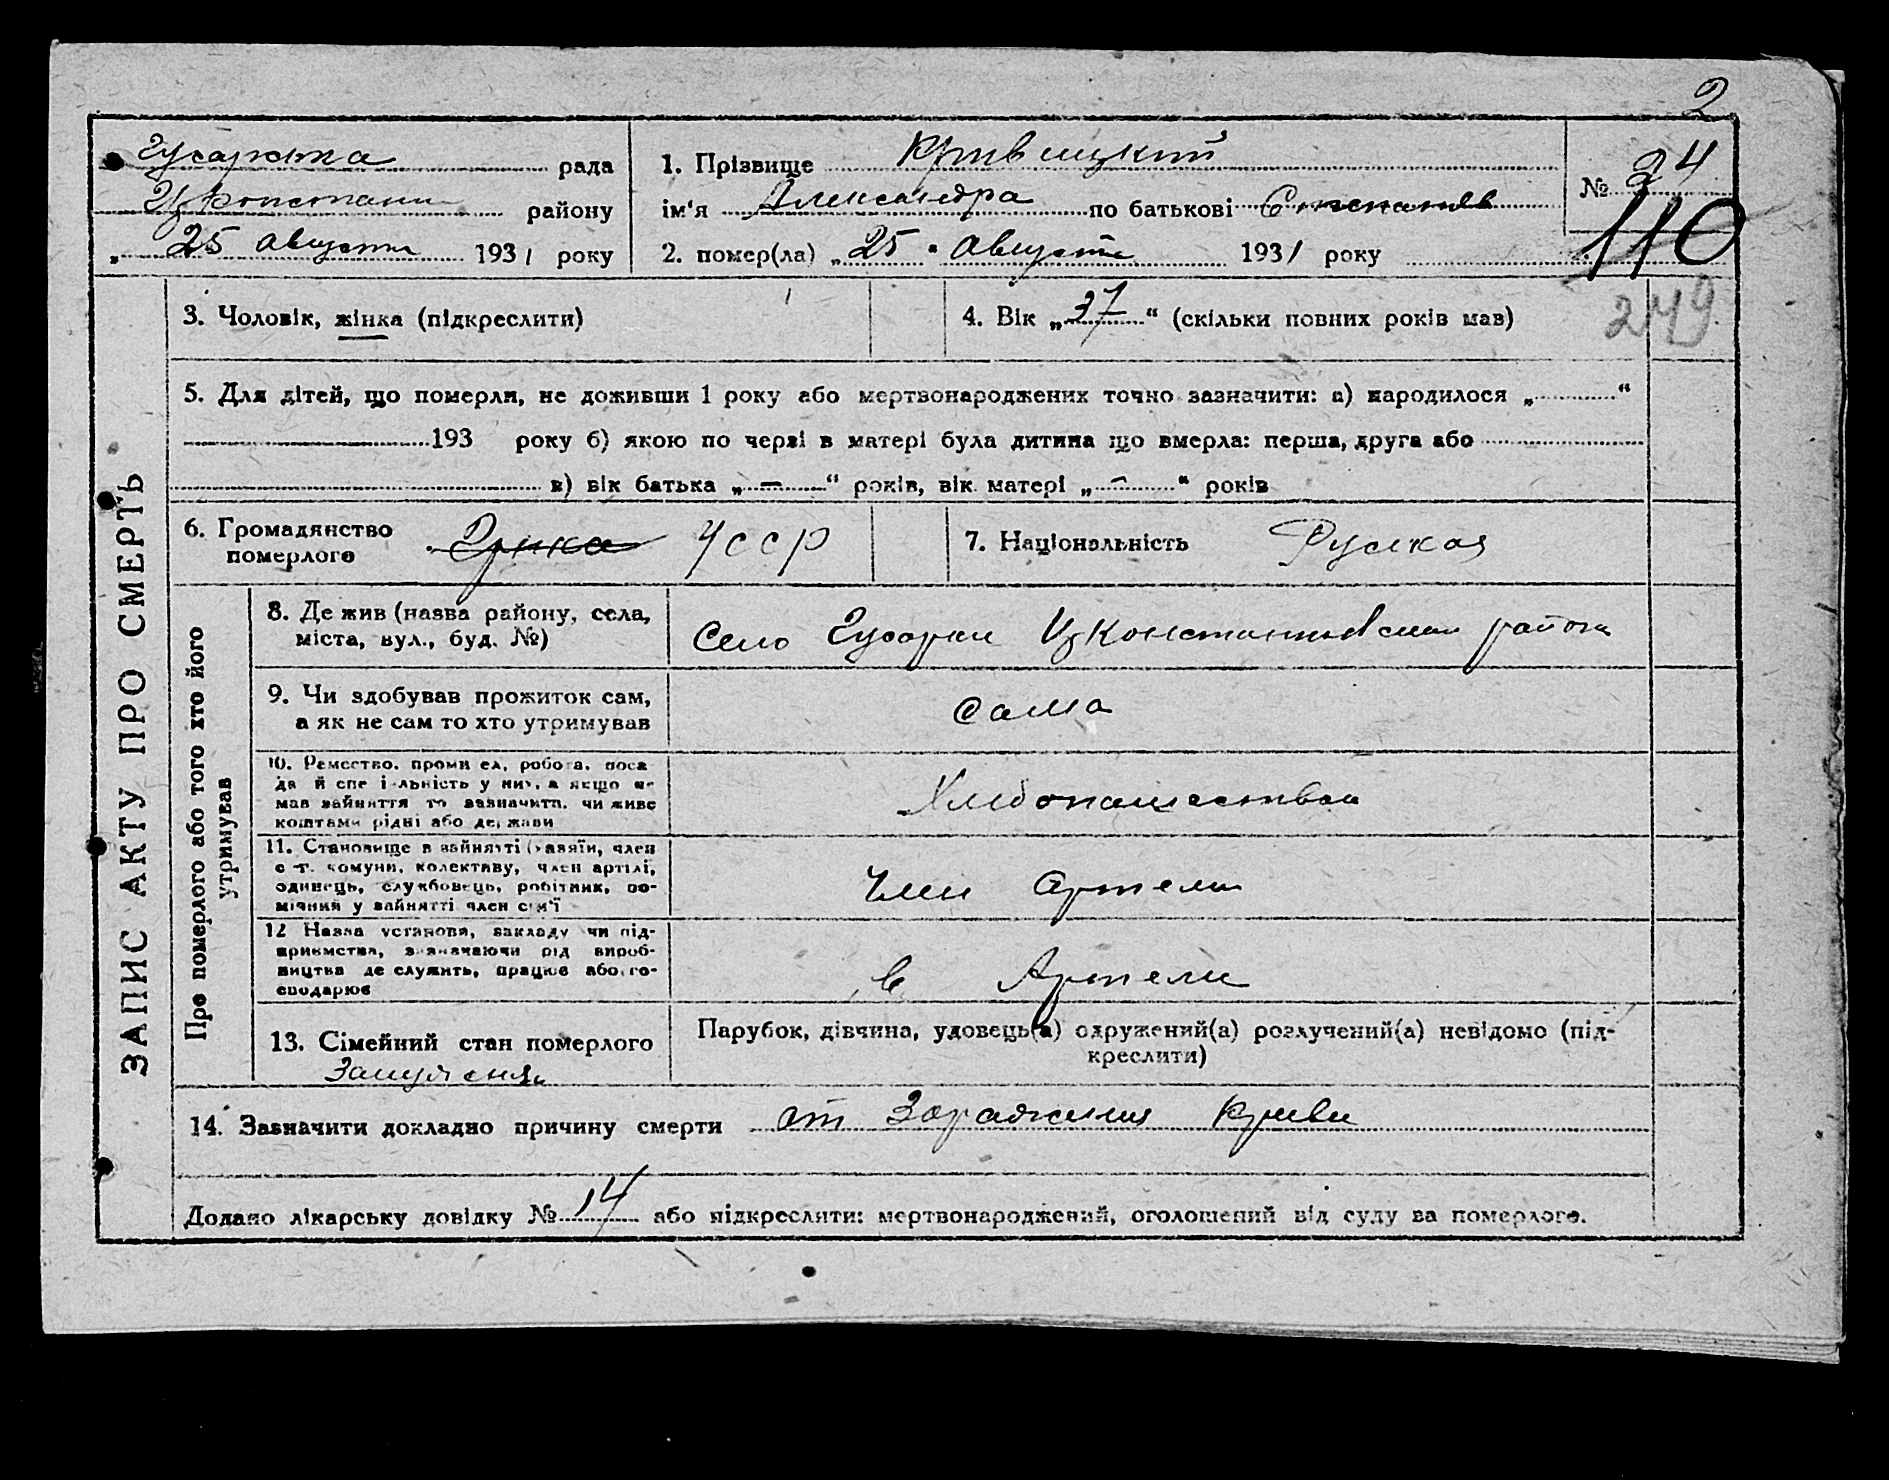 2
Гусарська рада
Ц Констант району
„ 25 августа 1931 року
1. Прізвище Кривицкий
ім'я Александра по батькові Степанов
2. помер(ла) „ 25 " августа 1931 року
№ 24
110
249
ЗАПИС АКТУ ПРО СМЕРТЬ
3. Чоловік, жінка (підкреслити)
4. Вік „ 37 “ (скільки повних років мав)
5. Для дітей, що померли, не доживши 1 року або мертвонароджених точно зазначити: а) народилося „ “
193 року б) якою по черзі в матері була дитина що вмерла: перша, друга або
в) вік батька „ – “ років, вік матері „ – “ років
6. Громадянство
померлого УССР
7. Національність Руская
Про померлого або того хто його
утримував
8. Де жив (назва району, села,
міста, вул., буд. №)
Село Гусарки Ц Константиновскии района
9. Чи здобував прожиток сам,
а як не сам то хто утримував
сама
10. Ремество, промисел, робота, поса
да й спеціальність у них, а якщо не
мав зайняття то зазначити, чи живе
коштами рідні або держави
Хлебопашество
11. Становище в зайнятті (хазяїн, член
с-г. комуни, колективу, член артілі,
одинець, службовець, робітник, по-
мічний у зайнятті член сім'ї
член артели
12 Назва установи, закладу чи під-
приємства, зазначаючи рід вироб-
ництва де служить, працює або го-
сподарює
в Артели
13. Сімейний стан померлого
Замужняя
Парубок, дівчина, удовець(а) одружений(а) розлучений(а) невідомо (під-
креслити)
14. Зазначити докладно причину смерти от Заражения Криви
Додано лікарську довідку № 14 або підкреслити: мертвонароджений, оголошений від суду за померлого.